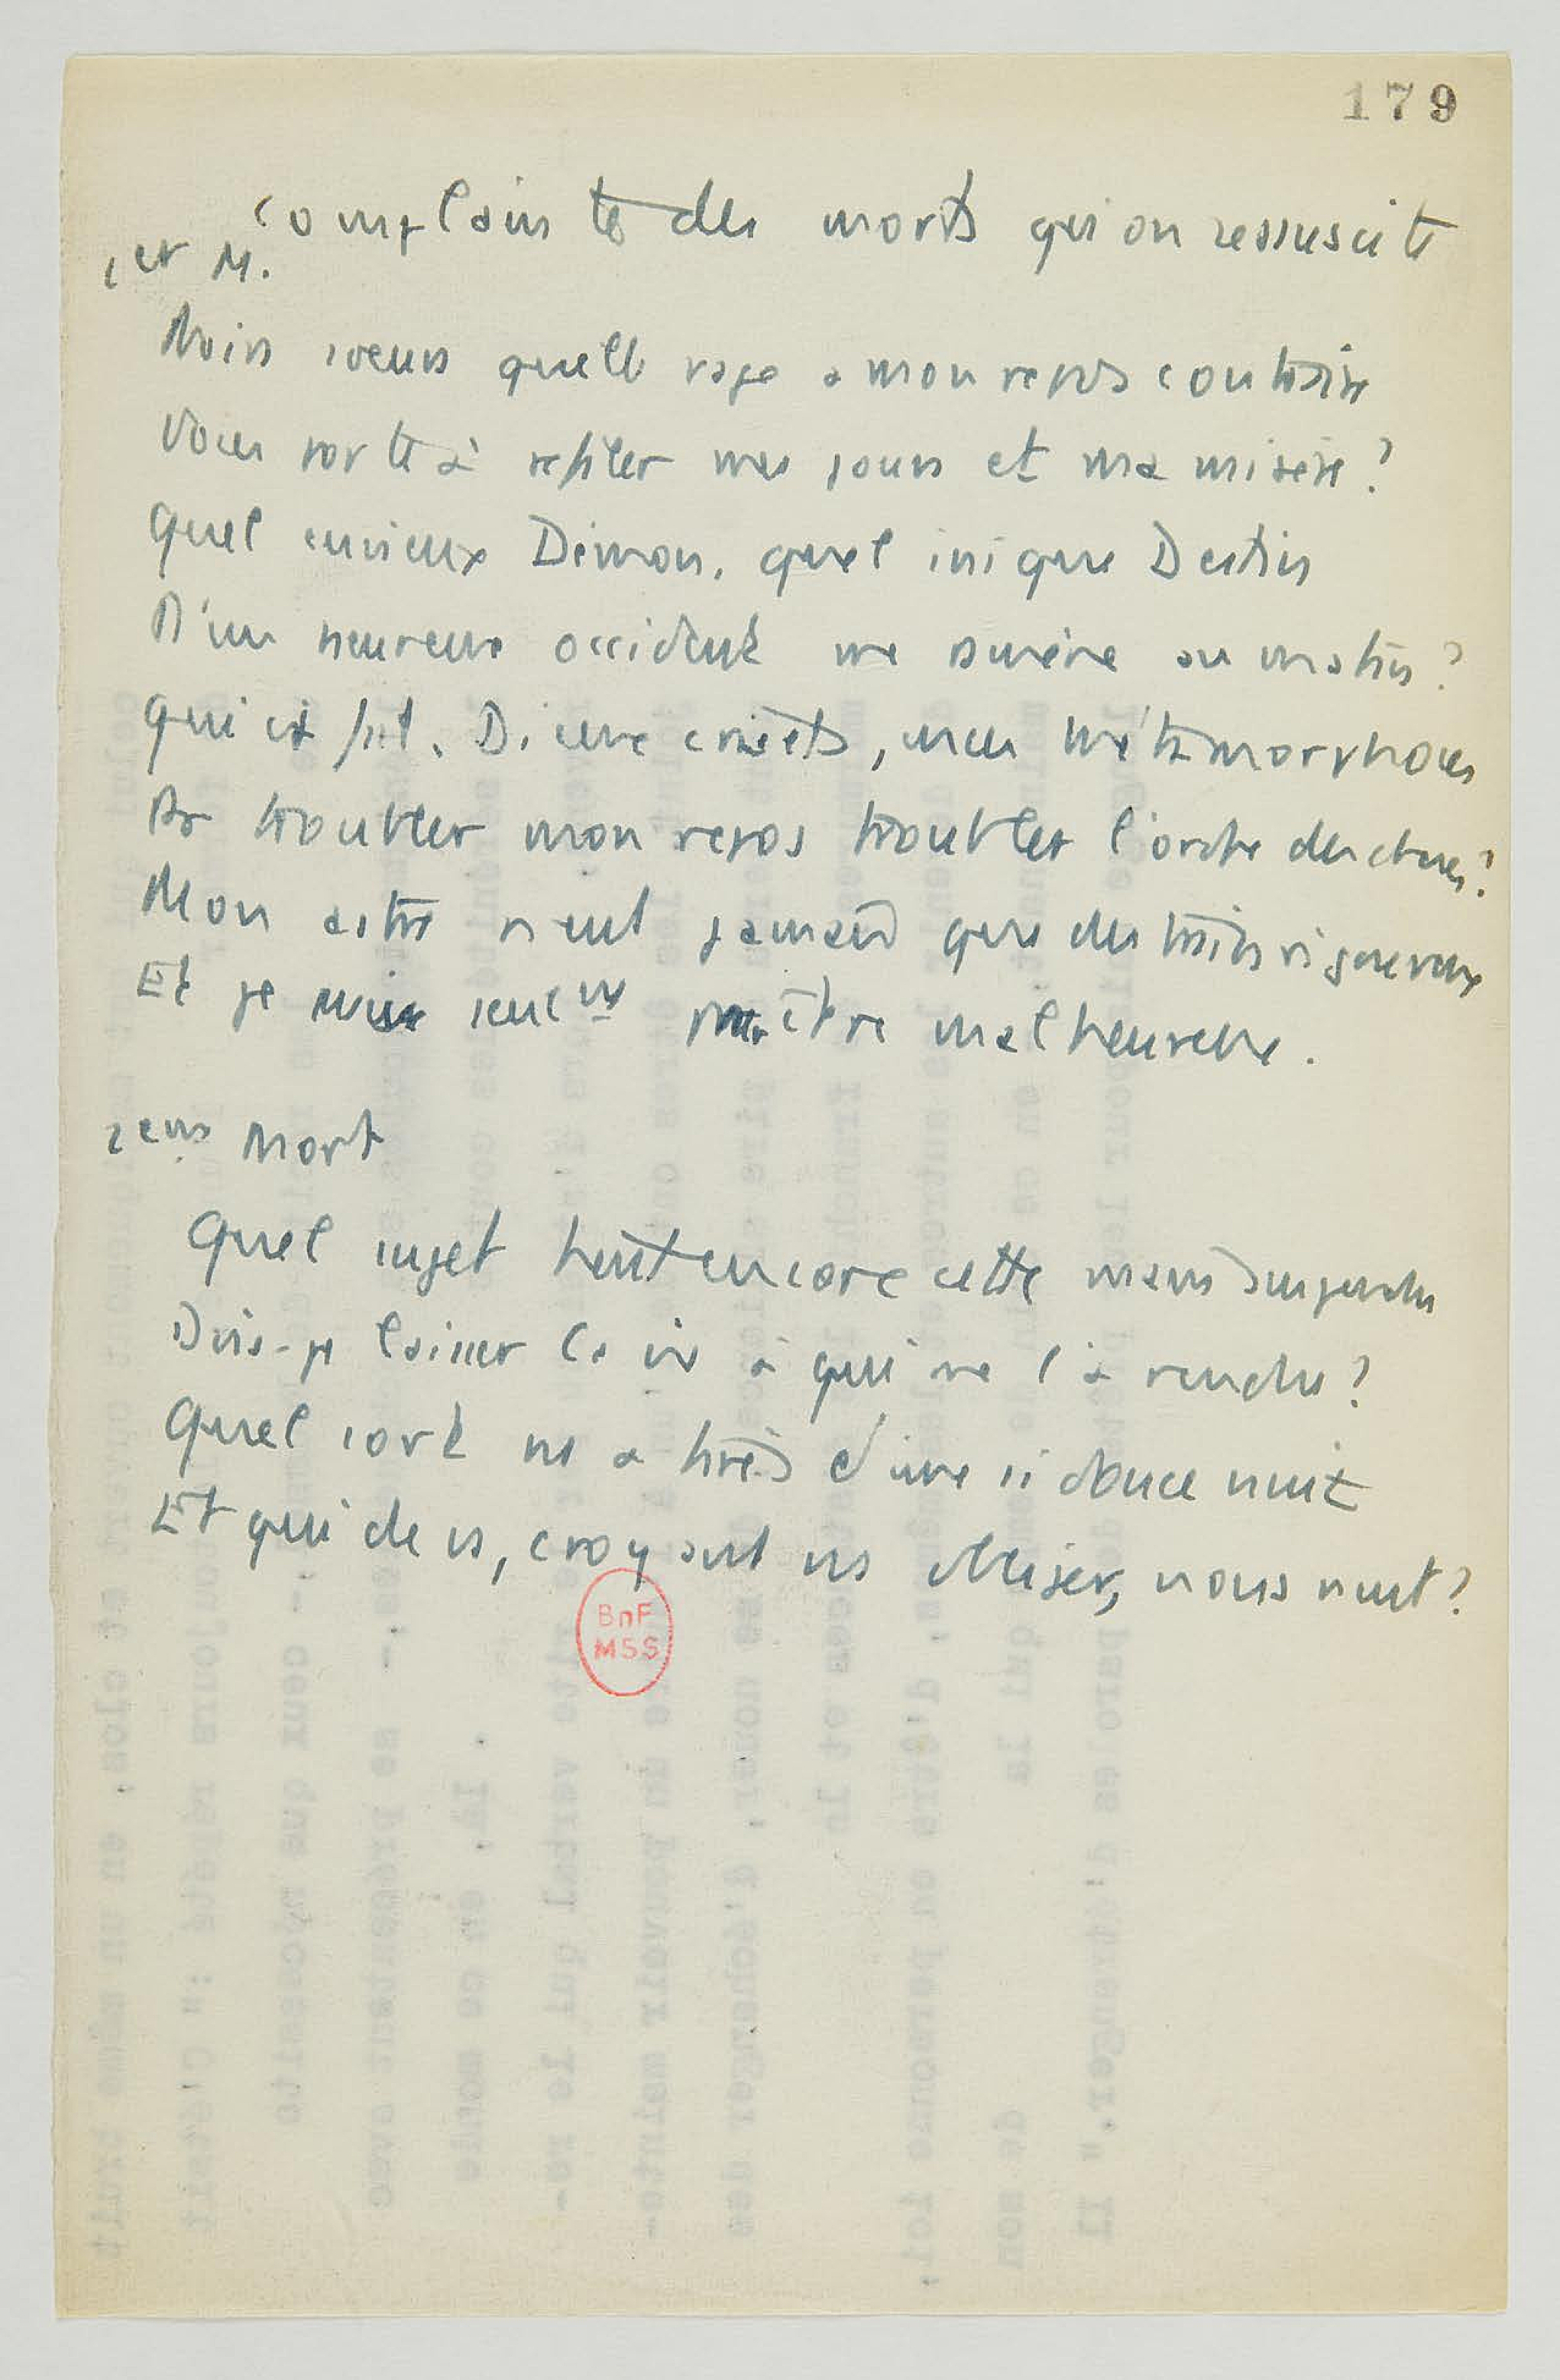 179
Complainte des morts qu'on ressuscite
1er M.
Noirs soeurs quelle rage a mon repos contraire
Vous porte à refiler mes jours et ma misère?
Quel envieux Démon, quel inique Destin
D'un heureux occident me ramène au matin?
Qui vous fit, Dieux, mes métamorphoses
Et troubler mon repos troubler l'ordre des choses?
Mon astre n'eut jamais que des traits rigoureux
Et je suis seulnt pour être malheureux.
2eme Mort
Quel sujet tient encore cette main suspendue
Dois-je laisser la vie à qui me l'a rendue?
Quel sort ns a tirés d'une si douce nuit
Et qui de ns, croyant ns obliger, nous nuit?
BnF
MSS